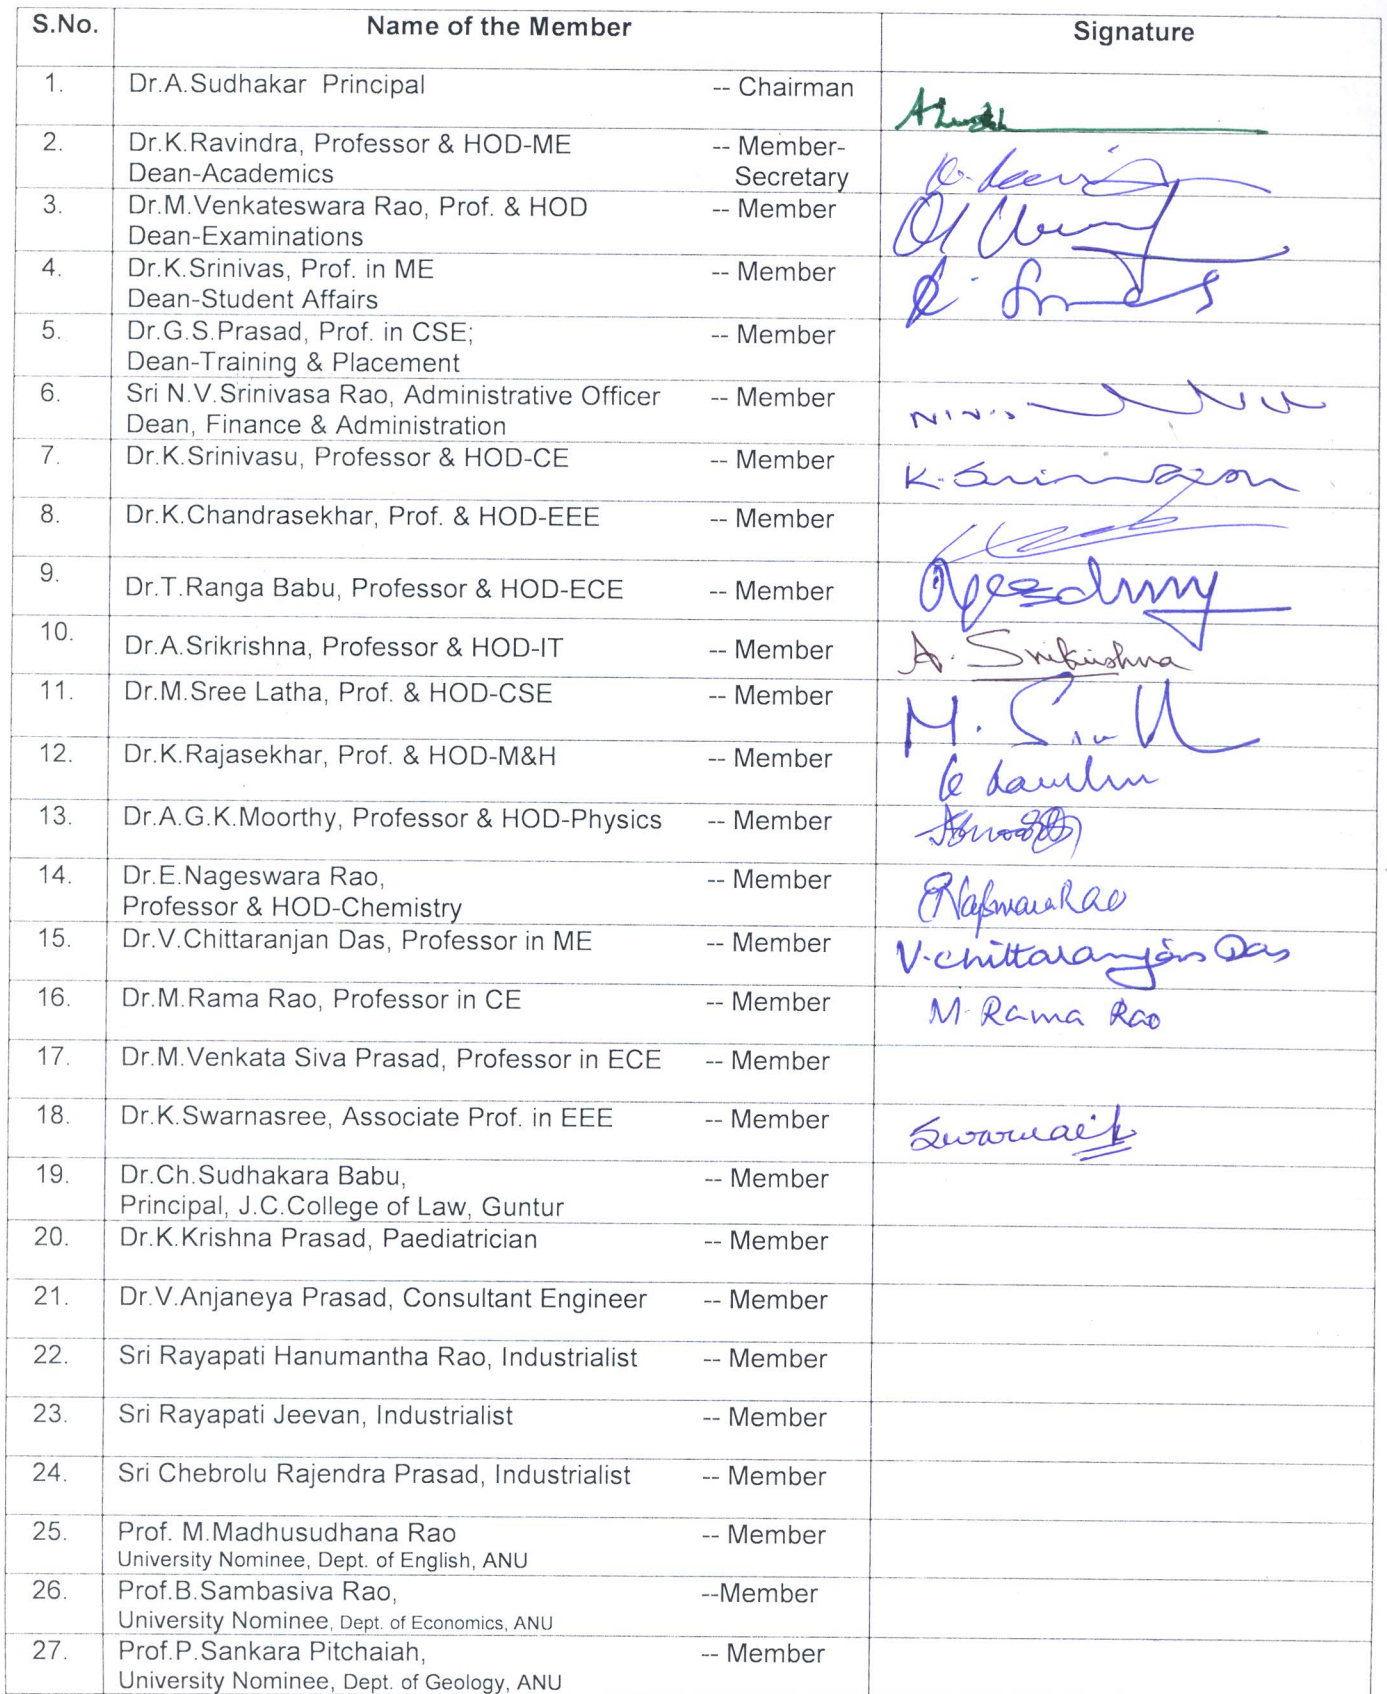 S.No. Name of the Member Signature
1. Dr.A.Sudhakar Principal -- Chairman
2. Dr.K.Ravindra, Professor & HOD-ME -- Member-
Dean-Academics Secretary
3. Dr.M.Venkateswara Rao, Prof. & HOD -- Member
Dean-Examinations
4. Dr.K.Srinivas, Prof. in ME -- Member
Dean-Student Affairs
5. Dr.G.S.Prasad, Prof. in CSE; -- Member
Dean-Training & Placement
6. Sri N.V.Srinivasa Rao, Administrative Officer -- Member
Dean, Finance & Administration
7. Dr.K.Srinivasu, Professor & HOD-CE -- Member
8. Dr.K.Chandrasekhar, Prof. & HOD-EEE -- Member
9. Dr.T.Ranga Babu, Professor & HOD-ECE -- Member
10. Dr.A.Srikrishna, Professor & HOD-IT -- Member A. Srikrishna
11. Dr.M.Sree Latha, Prof. & HOD-CSE -- Member
12. Dr.K.Rajasekhar, Prof. & HOD-M&H -- Member
13. Dr.A.G.K.Moorthy, Professor & HOD-Physics -- Member
14. Dr.E.Nageswara Rao, -- Member
Professor & HOD-Chemistry
15. Dr.V.Chittaranjan Das, Professor in ME -- Member V.Chittaranjan Das
16. Dr.M.Rama Rao, Professor in CE -- Member M. Rama Rao
17. Dr.M.Venkata Siva Prasad, Professor in ECE -- Member
18. Dr.K.Swarnasree, Associate Prof. in EEE -- Member
19. Dr.Ch.Sudhakara Babu, -- Member
Principal, J.C.College of Law, Guntur
20. Dr.K.Krishna Prasad, Paediatrician -- Member
21. Dr.V.Anjaneya Prasad, Consultant Engineer -- Member
22. Sri Rayapati Hanumantha Rao, Industrialist -- Member
23. Sri Rayapati Jeevan, Industrialist -- Member
24. Sri Chebrolu Rajendra Prasad, Industrialist -- Member
25. Prof. M.Madhusudhana Rao -- Member
University Nominee, Dept. of English, ANU
26. Prof.B.Sambasiva Rao, --Member
University Nominee, Dept. of Economics, ANU
27. Prof.P.Sankara Pitchaiah, -- Member
University Nominee, Dept. of Geology, ANU